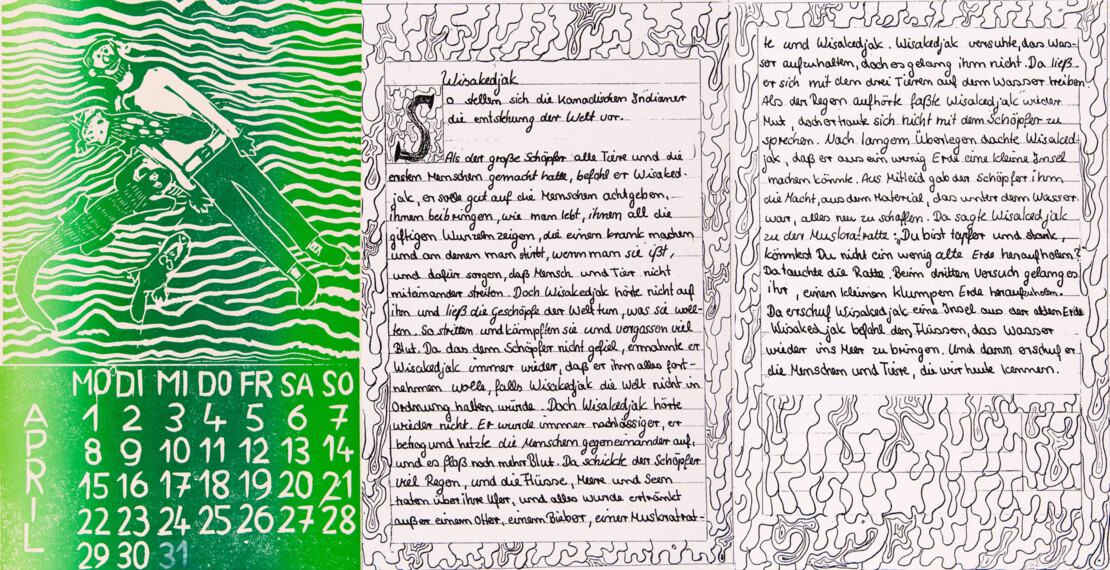 MO DI MI DO FR SA SO
APRIL
1 2 3 4 5 6 7
8 9 10 11 12 13 14
15 16 17 18 19 20 21
22 23 24 25 26 27 28
29 30 31
Wisakedjak
So stellen sich die Kanadischen Indianer
die entstehung der Welt vor.
Als der große Schöpfer alle Tiere und die
ersten Menschen gemacht hatte, befahl er Wisaked-
jak, er solle gut auf die Menschen achtgeben,
ihnen beibringen, wie man lebt, ihnen all die
giftigen Wurzeln zeigen, die einem krank machen
und an denen man stirbt, wenn man sie ißt,
und dafür sorgen, daß Mensch und Tier nicht
miteinander streiten. Doch Wisakedjak hörte nicht auf
ihn und ließ die Geschöpfe der Welt tun, was sie woll-
ten. So stritten und kämpften sie und vergossen viel
Blut. Da das dem Schöpfer nicht gefiel, ermahnte er
Wisakedjak immer wieder, daß er ihm alles fort-
nehmen wolle, falls Wisakedjak die Welt nicht in
Ordnung halten würde. Doch Wisakedjak hörte
wieder nicht. Er wurde immer nachlässiger, er
betrog und hetzte die Menschen gegeneinander auf,
und es floß noch mehr Blut. Da schickte der Schöpfer
viel Regen, und die Flüsse, Meere und Seen
traten über ihre Ufer, und alles wurde ertränkt
außer einem Otter, einem Bieber, einer Muskratrat-
te und Wisakedjak. Wisakedjak versuhte, das Was-
ser aufzuhalten, doch es gelang ihm nicht. Da ließ
er sich mit den drei Tieren auf dem Wasser treiben
Als der Regen aufhörte faßte Wisakedjak wieder
Mut, doch er traute sich nicht mit dem Schöpfer zu
sprechen. Nach langem Überlegen dachte Wisaked-
jak, daß er aus ein wenig Erde eine kleine Insel
machen könnte. Aus Mitleid gab der Schöpfer ihm
die Macht, aus dem Material, das unter dem Wasser
war, alles neu zu schaffen. Da sagte Wisakedjak
zu der Muskratratte: „Du bist tapfer und stark,
könntest Du nicht ein wenig alte Erde heraufholen?
Da tauchte die Ratte. Beim dritten Versuch gelang es
ihr, einen kleinen Klumpen Erde heraufzuholen.
Da erschuf Wisakedjak eine Insel aus der alten Erde
Wisakedjak befahl den Flüssen, das Wasser
wieder ins Meer zu bringen. Und dann erschuf er
die Menschen und Tiere, die wir heute kennen.